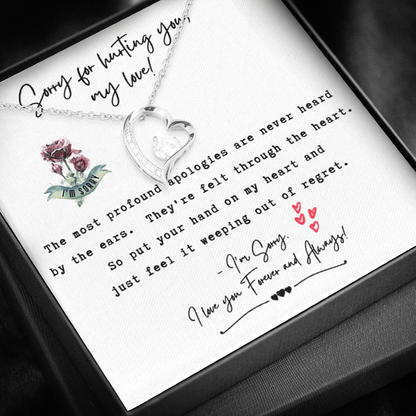 Sorry for hurting you,
my love!
I'M SORRY
The most profound apologies are never heard
by the ears. They're felt through the heart.
So put your hand on my heart and
just feel it weeping out of regret.
- I'm Sorry.
I love you Forever and Always!